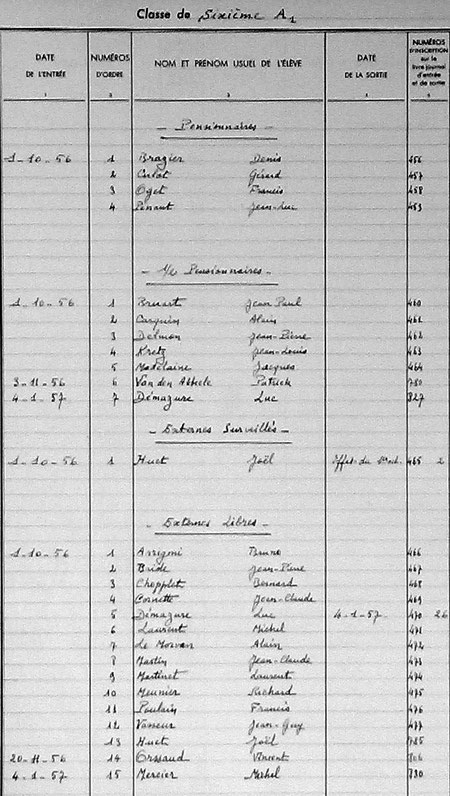 Classe de Sixième A1
DATE DE L'ENTRÉE NUMÉROS D'ORDRE NOM ET PRÉNOM USUEL DE L'ÉLÈVE DATE DE LA SORTIE NUMÉROS D'INSCRIPTION sur le livre journal d'entrée et de sortie
1 2 3 4 5
- Pensionnaires -
1-10-56 1 Brazier Denis 456
2 Culot Gérard 457
3 Oget Francis 458
4 Penaut Jean-Luc 459
- 1/2 Pensionnaires -
1-10-56 1 Bruart Jean Paul 460
2 Carquin Alain 461
3 Delmon Jean-Pierre 462
4 Kretz Jean-Louis 463
5 Madelaine Jacques 464
3-11-56 6 Van den Abbeele Patrick 780
4-1-57 7 Démazure Luc 827
- Externes Surveillés -
1-10-56 1 Huet Joël 465 2
- Externes Libres -
1-10-56 1 Arrigoni Bruno 466
2 Bride Jean-Pierre 467
3 Chopplet Bernard 468
4 Cornette Jean-Claude 469
5 Démazure Luc 4-1-57 470 26
6 Laurent Michel 471
7 Le Morvan Alain 472
8 Martin Jean-Claude 473
9 Martinet Laurent 474
10 Meunier Richard 475
11 Poulain Francis 476
12 Vasseur Jean-Guy 477
13 Huet Joël 785
20-11-56 14 Orssaud Vincent 806
4-1-57 15 Mercier Michel 830